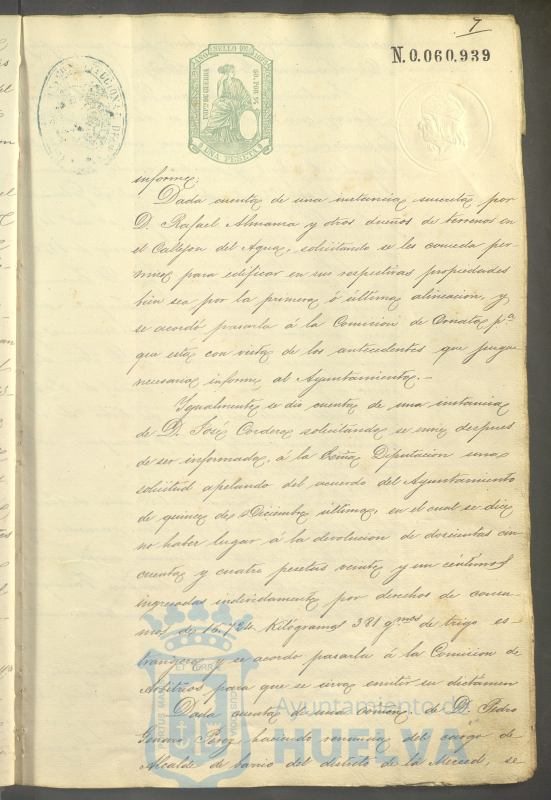 7
N.0.060.939
AÑO SELLO 10º
IMPº DE GUERRA
50 POR %
UNA PESETA
informe.
Dada cuenta de una instancia suscrita por
D. Rafael Almansa y otros dueños de terrenos en
el Callejon del Agua, solicitando se les conceda per
miso para edificar en sus respectivas propiedades
bien sea por la primera ó última alineacion, y
se acordó pasarla á la Comision de Ornato pª
que esta con vista de los antecedentes que juzgue
necesarios informe al Ayuntamiento.-
Igualmente se dió cuenta de una instancia
de D. José Cordero solicitando se una despues
de ser informada, á la Diputacion una
solicitud apelando del acuerdo del Ayuntamiento
de quince de Diciembre último, en el cual se dice
no haber lugar á la devolucion de doscientas cin
cuenta y cuatro pesetas veinte y un céntimos
ingresadas indevidamente por derechos de consu-
mos de 15.724 Kilógramos 381 gmos de trigo es-
trangero y se acordó pasarla á la Comision de
Arbitrios para que se sirva emitir su dictámen
Dada cuenta de una comunicon de D. Pedro
Genaro Perez haciendo renuncia del cargo de
Alcalde de barrio del distrito de la Merced, se
Ayuntamiento de
HUELVA
PORTUS MARIS
ET TERRÆ
CUSTODIA